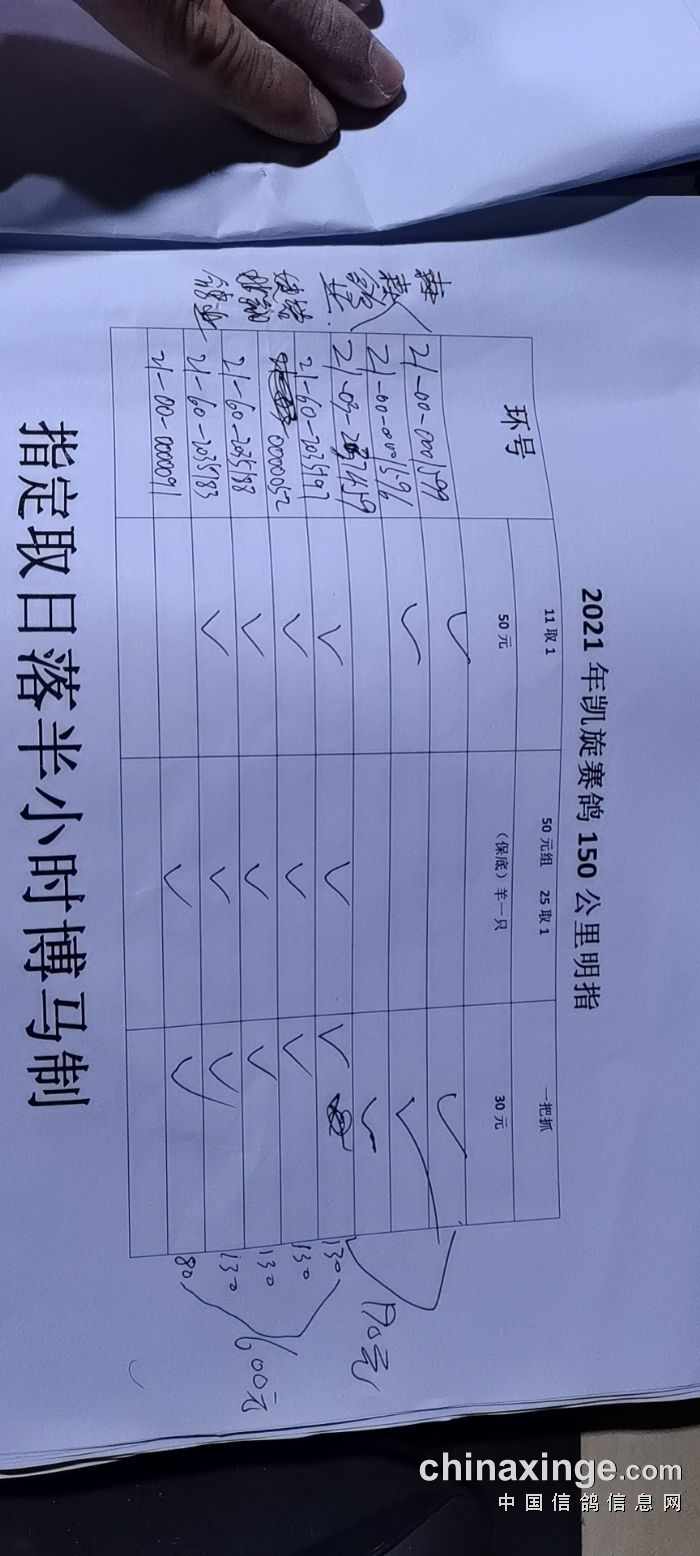 2021 年凯旋赛鸽 150 公里明指
环号 11 取 1 50 元组 25 取 1 一把抓
50 元 （保底）羊一只 30 元
21-00-0001599 ✓ ✓
21-00-0001596 ✓ ✓
✓
170元
21-60-2035197 ✓ ✓ ✓ 130
0000052 ✓ ✓ ✓ 130
21-60-2035188 ✓ ✓ ✓ 130
21-60-2035183 ✓ ✓ ✓ 130
21-00-0000091 ✓ ✓ 80
600元
指定取日落半小时博马制
chinaxinge.com
中国信鸽信息网